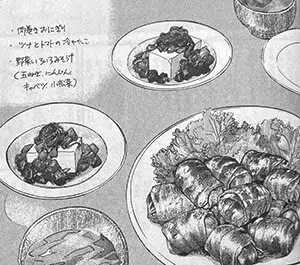 ・肉巻きおにぎり
・ツナとトマトの冷やっこ
・野菜いろいろみそ汁
(玉ねぎ、にんじん、
キャベツ、小松菜)